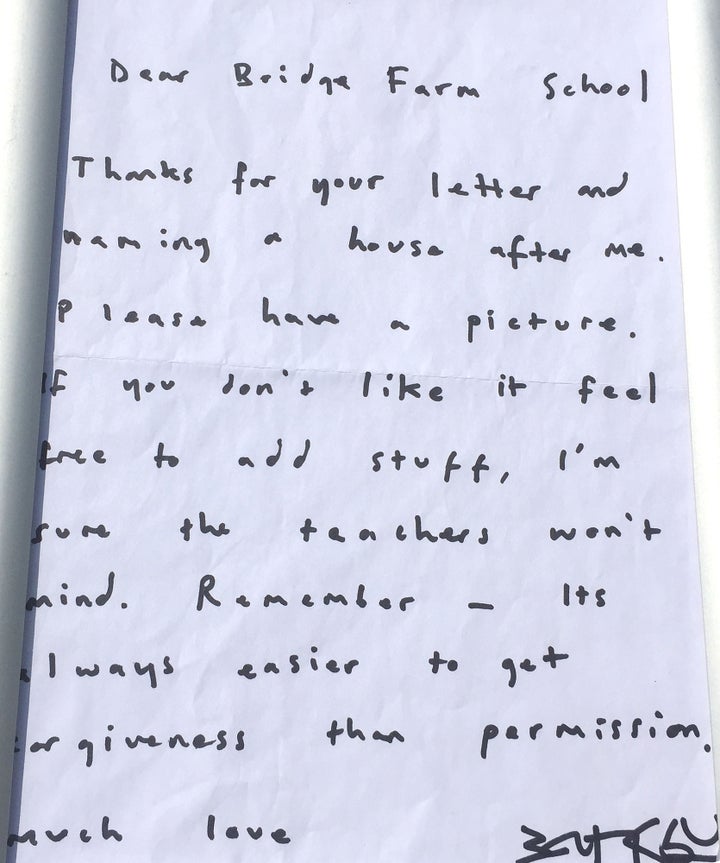 Dear Bridge Farm School
Thanks for your letter and
naming a house after me.
Please have a picture.
If you don't like it feel
free to add stuff, I'm
sure the teachers won't
mind. Remember – Its
always easier to get
forgiveness than permission.
much love